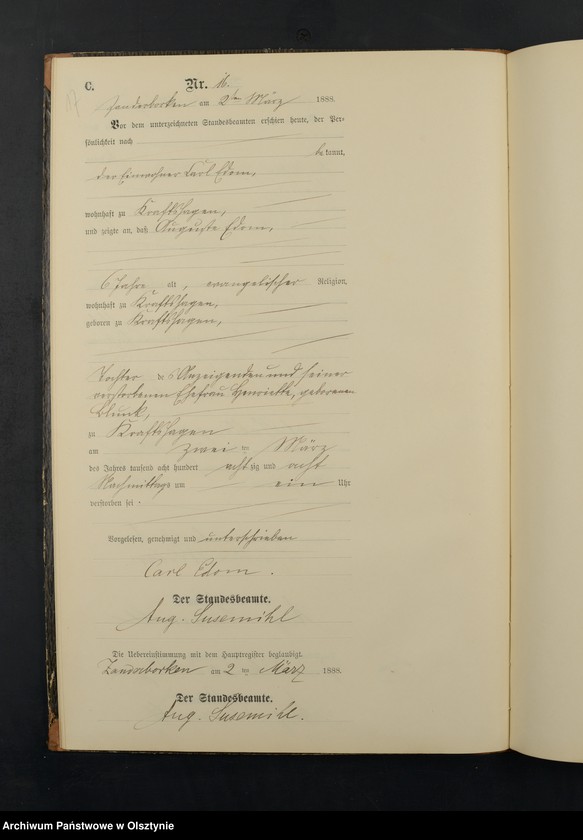 C. Nr. 16.
17
Zanderborken am 2ten März 1888.
Vor dem unterzeichneten Standesbeamten erschien heute, der Per-
sönlichkeit nach
bekannt,
der Einwohner Carl Edom,
wohnhaft zu Kraftshagen,
und zeigte an, daß Auguste Edom,
6 Jahre alt, evangelischer Religion,
wohnhaft zu Kraftshagen,
geboren zu Kraftshagen,
Tochter des Anzeigenden und seiner
verstorbenen Ehefrau Henriette, geborenen
Blunk,
zu Kraftshagen
am zwei ten März
des Jahres tausend acht hundert achtzig und acht
Nachmittags um ein Uhr
verstorben sei -
Vorgelesen, genehmigt und unterschrieben
Carl Edom.
Der Standesbeamte.
Aug. Susemihl
Die Uebereinstimmung mit dem Hauptregister beglaubigt.
Zanderborken am 2 ten März 1888.
Der Standesbeamte.
Aug. Susemihl.
Archiwum Państwowe w Olsztynie